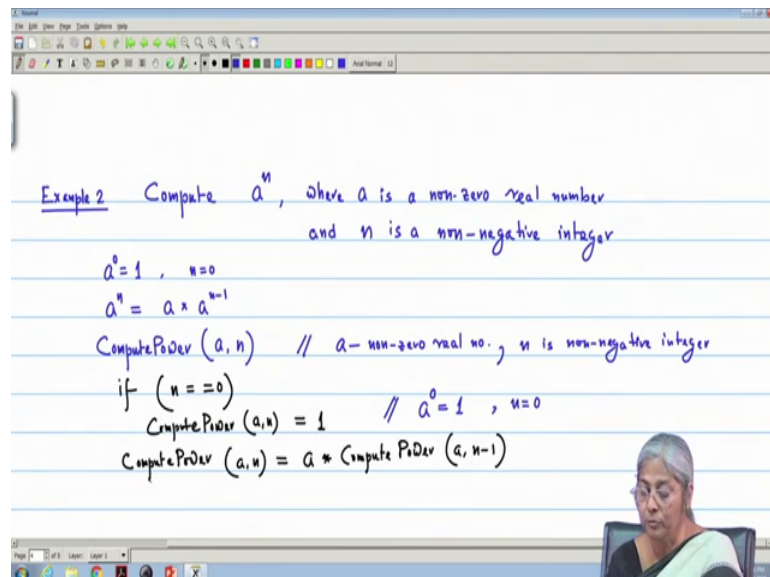 Journal
File Edit View Page Tools Options Help
Arial Normal 12
Example 2 Compute aⁿ, where a is a non-zero real number
and n is a non-negative integer
a⁰ = 1 , n=0
aⁿ = a × aⁿ⁻¹
ComputePower (a, n) // a – non-zero real no., n is non-negative integer
if (n = =0)
ComputePower (a,n) = 1 // a⁰ = 1 , n=0
ComputePower (a,n) = a * Compute Power (a, n-1)
Page 4 of 5 Layer: Layer 1